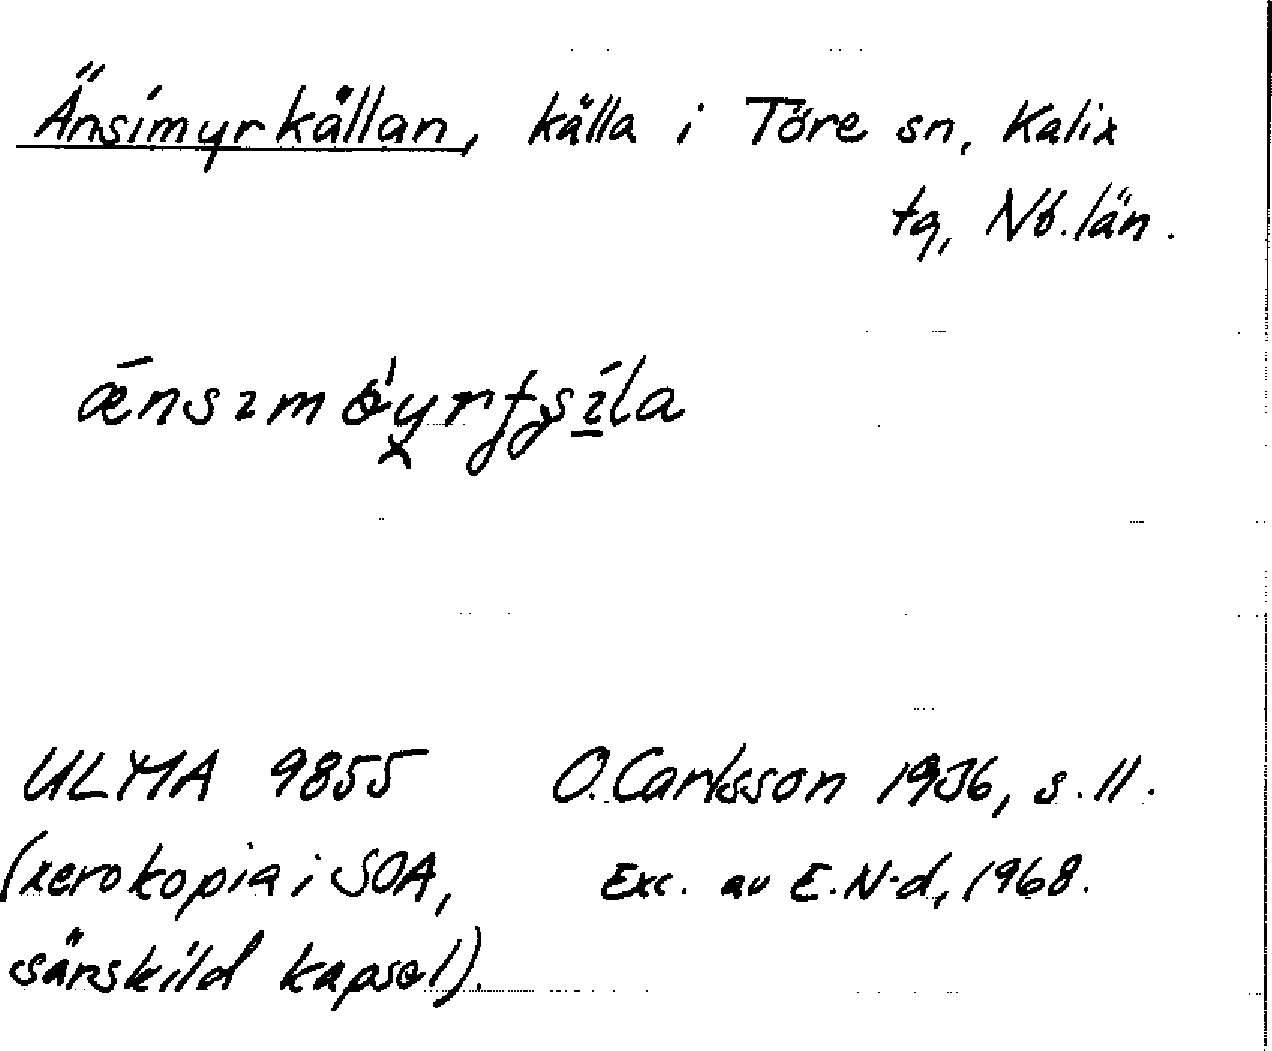 Änsimyrkällan, källa i Töre sn, Kalix
tg, Nb. län.
ULMA 9855 O. Carlsson 1936, s. 11.
(xerokopia i SOA, Exc. av E. N-d, 1968.
särskild kapsel).